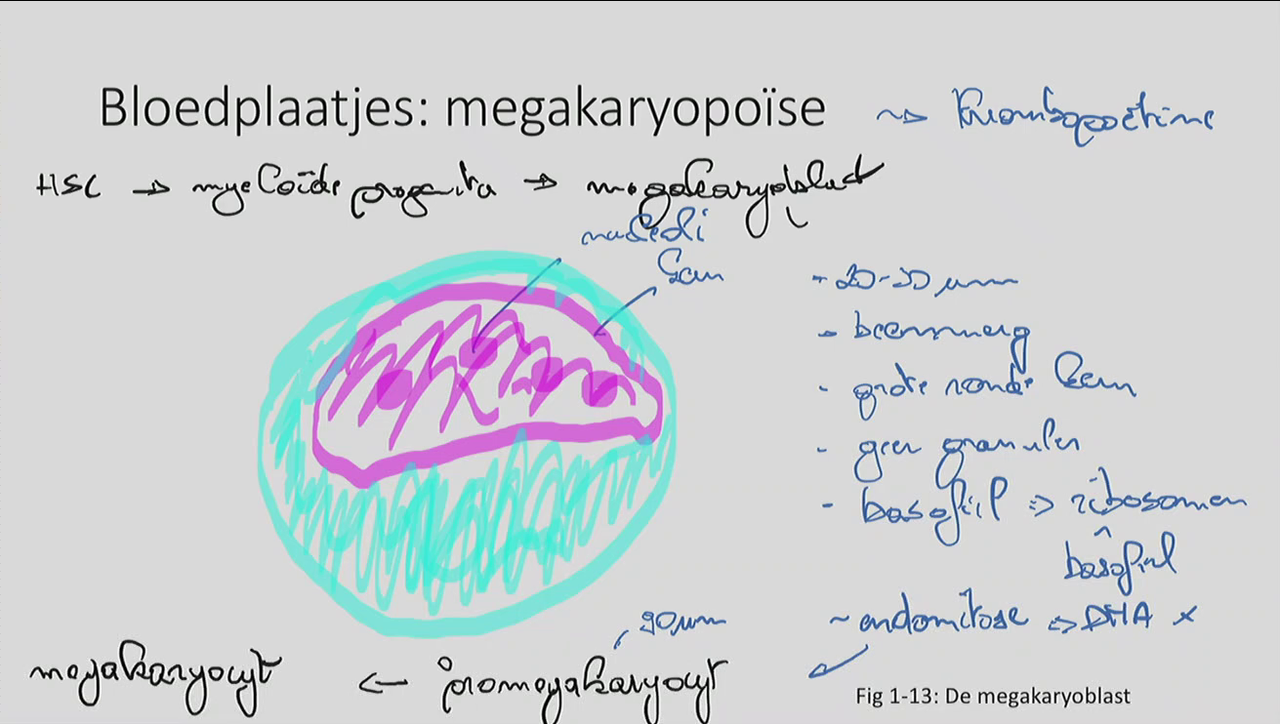 Bloedplaatjes: megakaryopoïse ~> trombopoëtine
HSC → myeloïde progenitor → megakaryoblast
nucleoli
kern
- 20-30 µm
- beenmerg
- grote ronde kern
- geen granules
- basofiel => ribosomen
basofiel
~ endomitose => DNA x
90 µm
megakaryocyt ← promegakaryocyt
Fig 1-13: De megakaryoblast